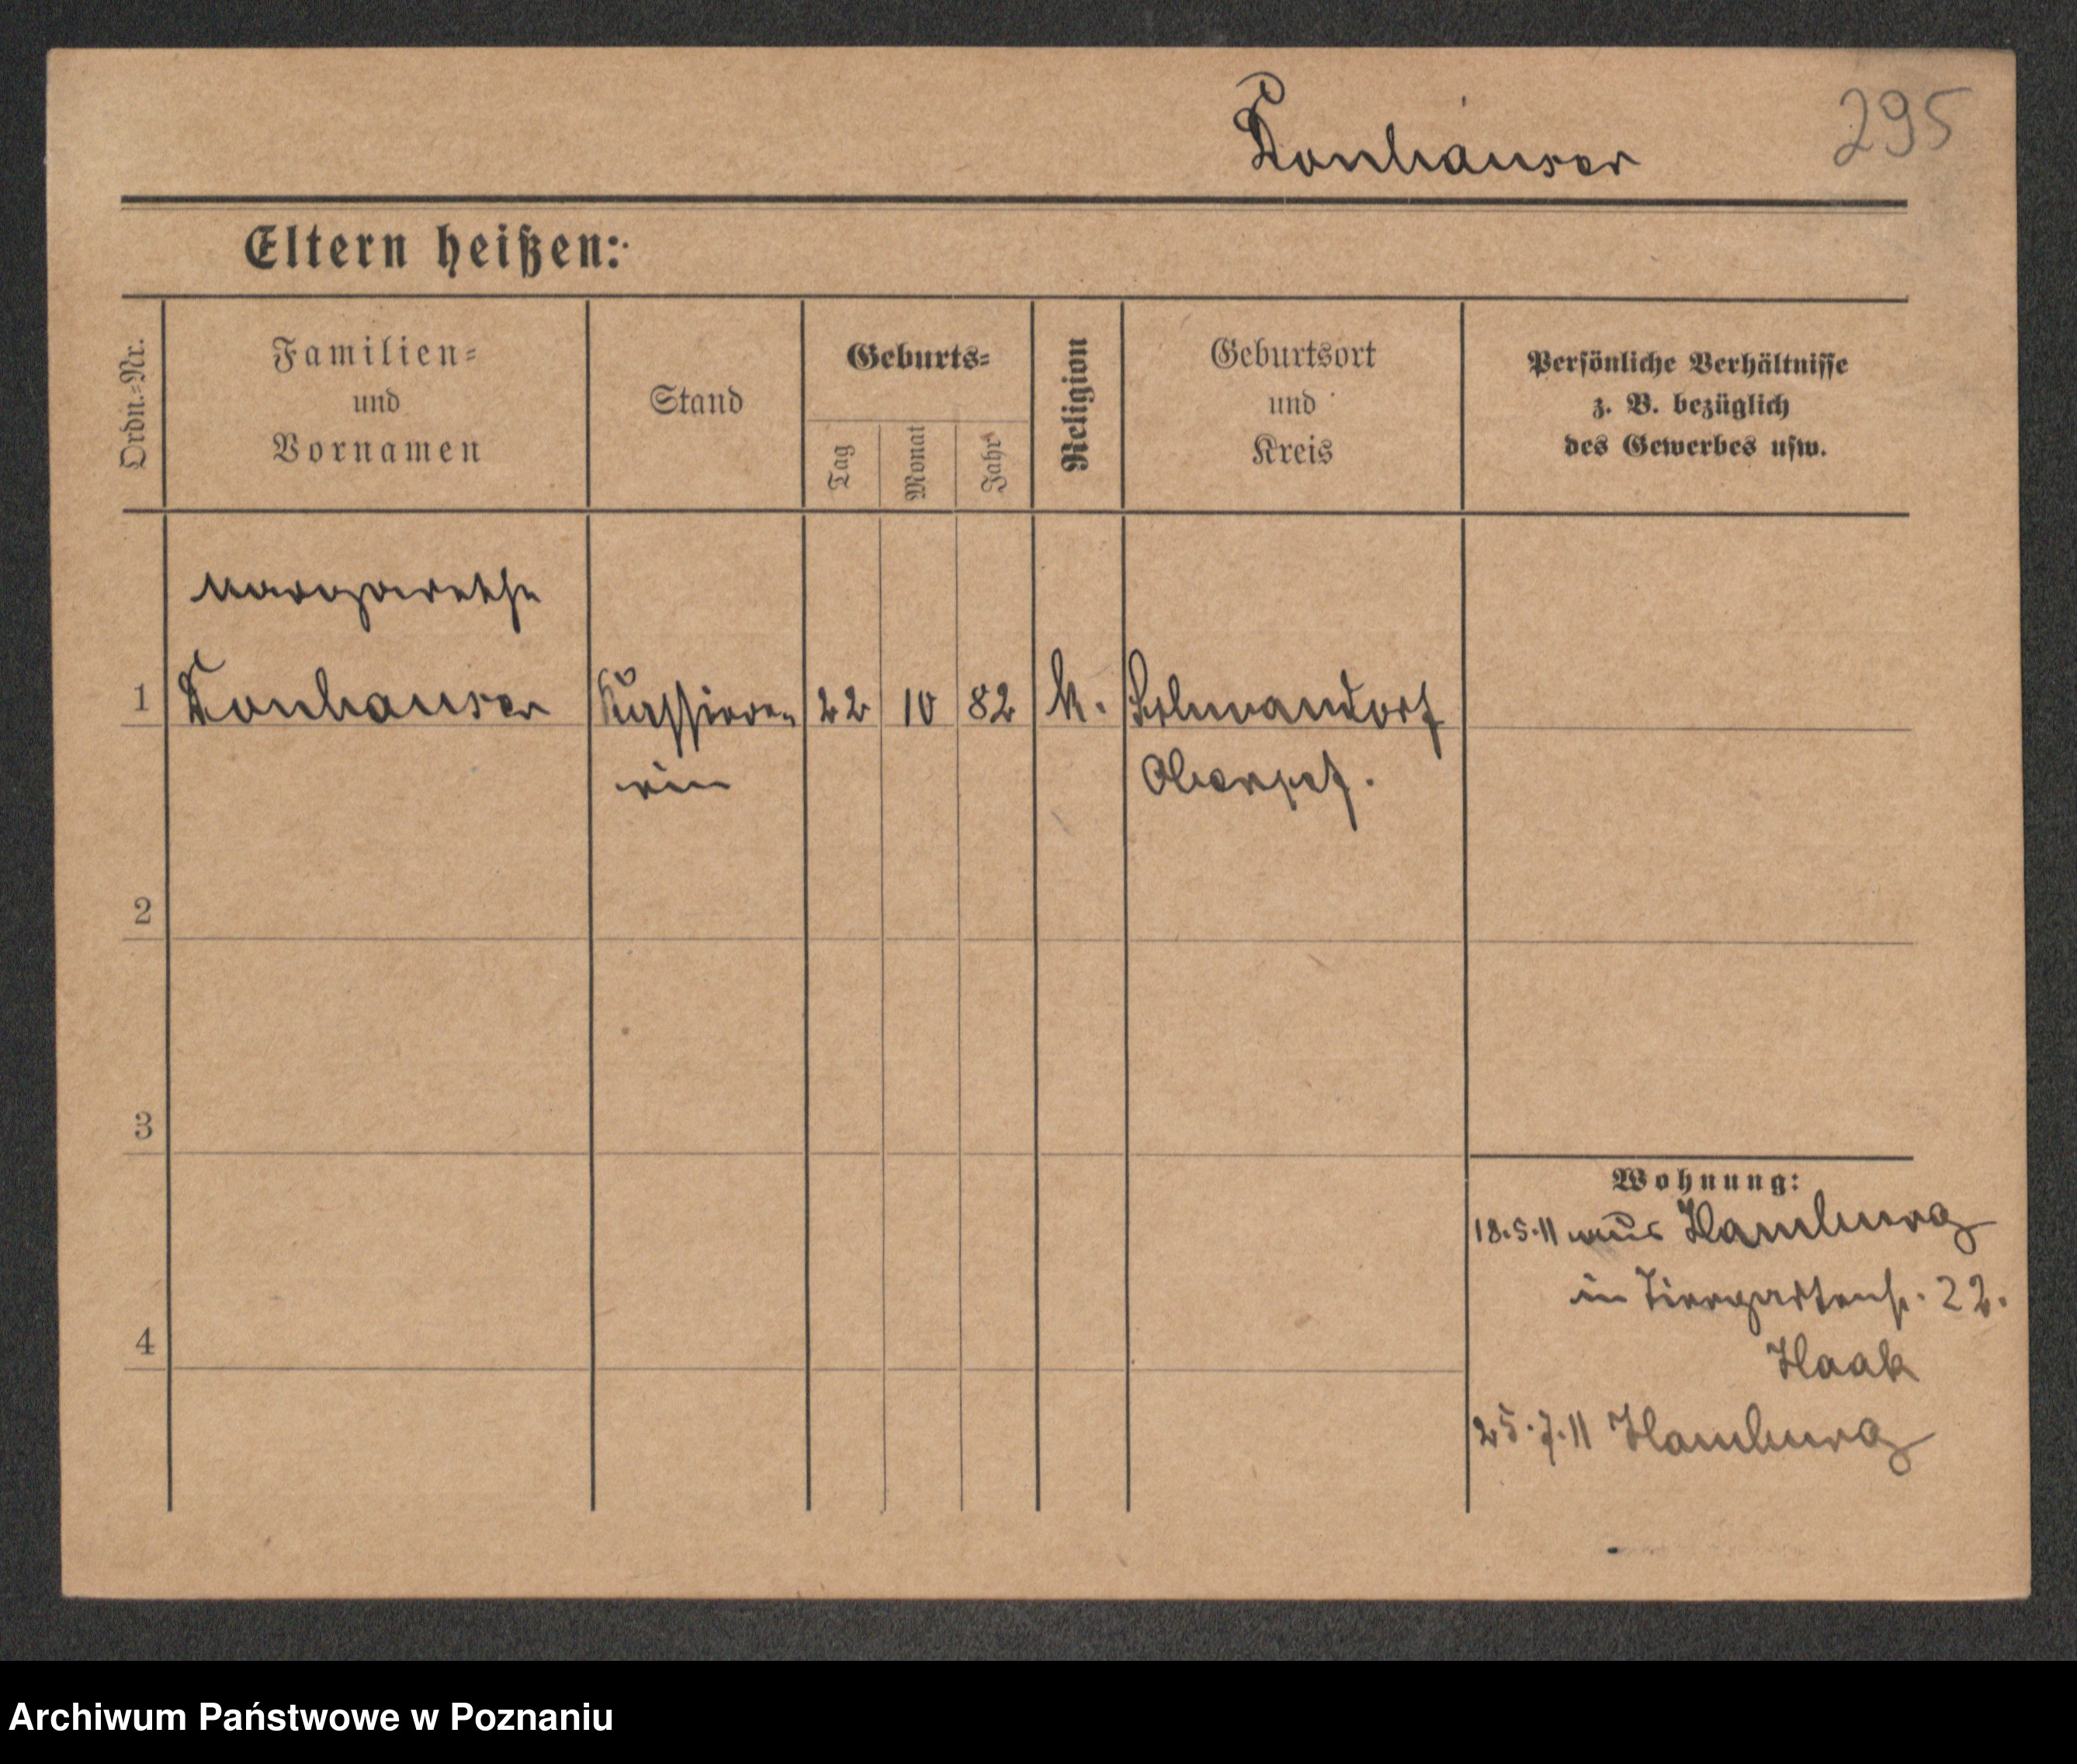 Donhauser
295
Eltern heißen:
Ordn.=Nr.
Familien=
und
Vornamen
Stand
Geburts=
Tag
Monat
Jahr
Religion
Geburtsort
und
Kreis
Persönliche Verhältnisse
z. B. bezüglich
des Gewerbes usw.
Margarethe
1 Donhauser 22 10 82 k. Schwandorf
rin Oberpf.
2
3
4
Wohnung:
18.5.11 aus Hamburg
in Tiergartenstr. 22.
Haak
25.7.11 Hamburg
Archiwum Państwowe w Poznaniu